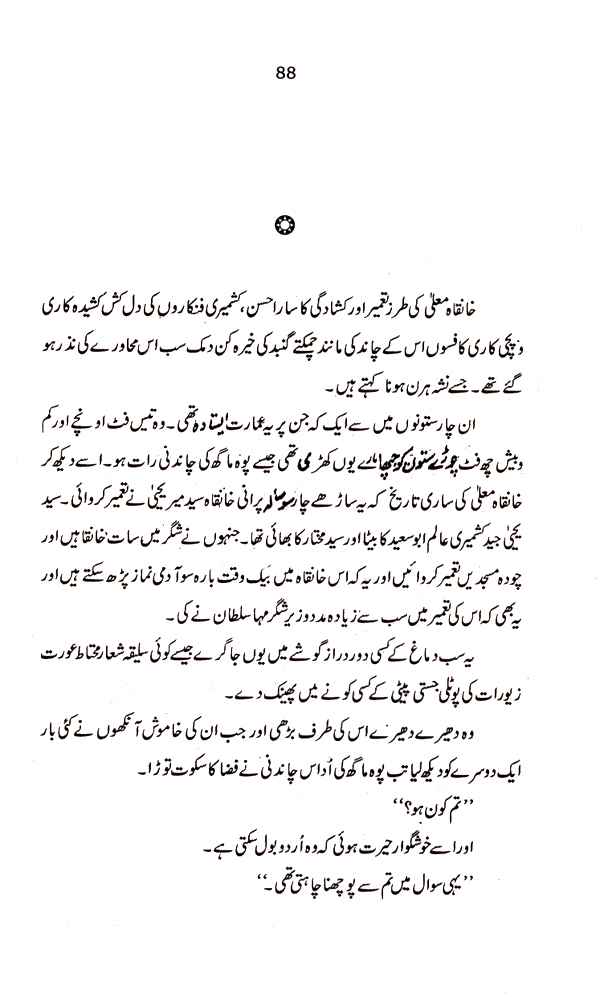 88
خانقاہ معلیٰ کی طرز تعمیر اور کشادگی کا سارا حسن، کشمیری فنکاروں کی دل کش کشیدہ کاری
و پچی کاری کا فسوں اس کے چاند کی مانند چمکتے گنبد کی خیرہ کن دمک سب اس محاورے کی نذر ہو
گئے تھے۔ جسے نشہ ہرن ہونا کہتے ہیں۔
ان چار ستونوں میں سے ایک کہ جن پر یہ عمارت ایستادہ تھی۔ وہ تیس فٹ اونچے اور کم
و بیش چھ فٹ چوڑے ستون کو جپھا مارے یوں کھڑی تھی جیسے پوہ ماگھ کی چاندنی رات ہو۔ اسے دیکھ کر
خانقاہ معلیٰ کی ساری تاریخ کہ یہ ساڑھے چار سو سالہ پرانی خانقاہ سید میر یحییٰ نے تعمیر کروائی۔ سید
یحییٰ جید کشمیری عالم ابو سعید کا بیٹا اور سید مختار کا بھائی تھا۔ جنہوں نے شگر میں سات خانقاہیں اور
چودہ مسجدیں تعمیر کروائیں اور یہ کہ اس خانقاہ میں بیک وقت بارہ سو آدمی نماز پڑھ سکتے ہیں اور
یہ بھی کہ اس کی تعمیر میں سب سے زیادہ مدد وزیر شگر مہا سلطان نے کی۔
یہ سب دماغ کے کسی دور دراز گوشے میں یوں جا گرے جیسے کوئی سلیقہ شعار محتاط عورت
زیورات کی پوٹلی جستی پیٹی کے کسی کونے میں پھینک دے۔
وہ دھیرے دھیرے اس کی طرف بڑھی اور جب ان کی خاموش آنکھوں نے کئی بار
ایک دوسرے کو دیکھ لیا تب پوہ ماگھ کی اُداس چاندنی نے فضا کا سکوت توڑا۔
’’تم کون ہو؟‘‘
اور اسے خوشگوار حیرت ہوئی کہ وہ اُردو بول سکتی ہے۔
’’یہی سوال میں تم سے پوچھنا چاہتی تھی۔‘‘